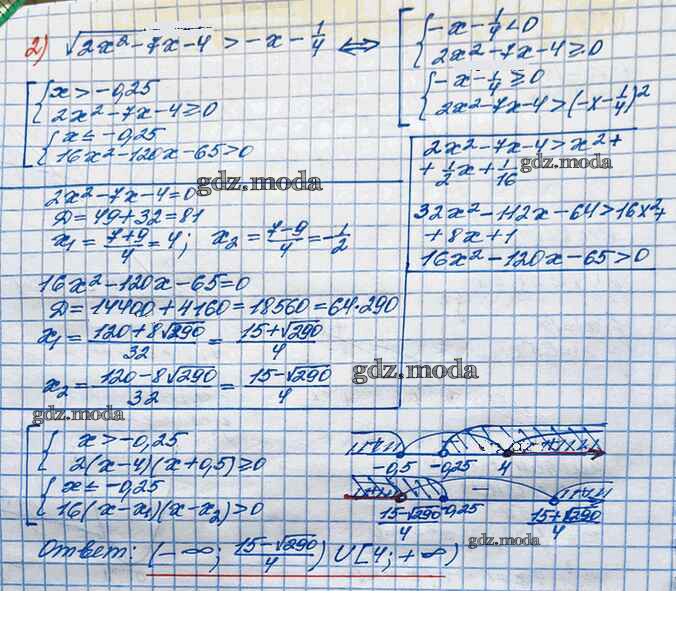 2) √2x²-7x-4 > -x - 1/4 ⟺ [ { -x - 1/4 < 0
2x²-7x-4 ≥ 0
{ -x - 1/4 ≥ 0
2x²-7x-4 > (-x - 1/4)²
[ { x > -0,25
2x²-7x-4 ≥ 0
{ x ≤ -0,25
16x²-120x-65 > 0
2x²-7x-4 > x² +
+ 1/2 x + 1/16
32x²-112x-64 > 16x² +
+ 8x + 1
16x²-120x-65 > 0
gdz.moda
gdz.moda
2x²-7x-4 = 0
D = 49+32 = 81
x₁ = (7+9)/4 = 4; x₂ = (7-9)/4 = -1/2
16x²-120x-65 = 0
D = 14400 + 4160 = 18560 = 64·290
x₁ = (120+8√290)/32 = (15+√290)/4
x₂ = (120-8√290)/32 = (15-√290)/4
gdz.moda
gdz.moda
[ { x > -0,25
2(x-4)(x+0,5) ≥ 0
{ x ≤ -0,25
16(x-x₁)(x-x₂) > 0
-0,5 -0,25 4
gdz.moda
-
(15-√290)/4 -0,25 (15+√290)/4
gdz.moda
Ответ: (-∞; (15-√290)/4) ∪ [4; +∞)